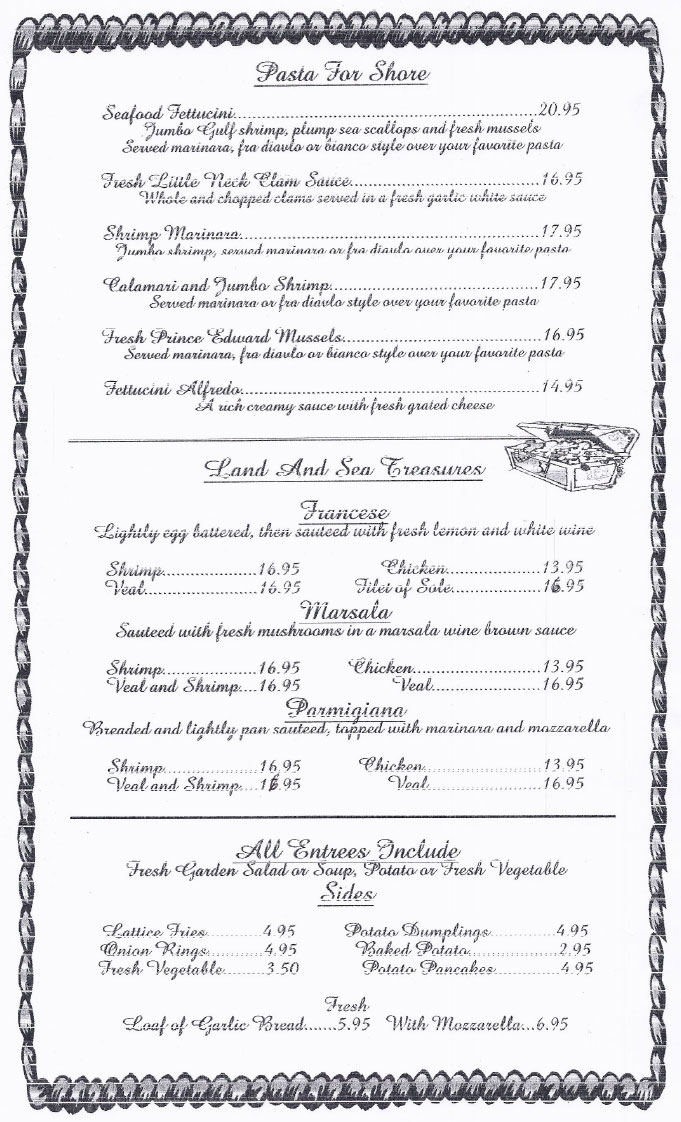 Pasta For Shore
Seafood Fettucini..........20.95
Jumbo Gulf shrimp, plump sea scallops and fresh mussels
Served marinara, fra diavlo or bianco style over your favorite pasta
Fresh Little Neck Clam Sauce..........16.95
Whole and chopped clams served in a fresh garlic white sauce
Shrimp Marinara..........17.95
Jumbo shrimp, served marinara or fra diavlo over your favorite pasta
Calamari and Jumbo Shrimp..........17.95
Served marinara or fra diavlo style over your favorite pasta
Fresh Prince Edward Mussels..........16.95
Served marinara, fra diavlo or bianco style over your favorite pasta
Fettucini Alfredo..........14.95
A rich creamy sauce with fresh grated cheese
Land And Sea Treasures
Francese
Lightly egg battered, then sauteed with fresh lemon and white wine
Shrimp..........16.95 Chicken..........13.95
Veal..........16.95 Filei of Sole..........16.95
Marsala
Sauteed with fresh mushrooms in a marsala wine brown sauce
Shrimp..........16.95 Chicken..........13.95
Veal and Shrimp....16.95 Veal..........16.95
Parmigiana
Breaded and lightly pan sauteed, topped with marinara and mozzarella
Shrimp..........16.95 Chicken..........13.95
Veal and Shrimp....16.95 Veal..........16.95
All Entrees Include
Fresh Garden Salad or Soup, Potato or Fresh Vegetable
Sides
Lattice Fries..........4.95 Potato Dumplings..........4.95
Onion Rings..........4.95 Baked Potato..........2.95
Fresh Vegetable.......3.50 Potato Pancakes..........4.95
Fresh
Loaf of Garlic Bread.......5.95 With Mozzarella...6.95